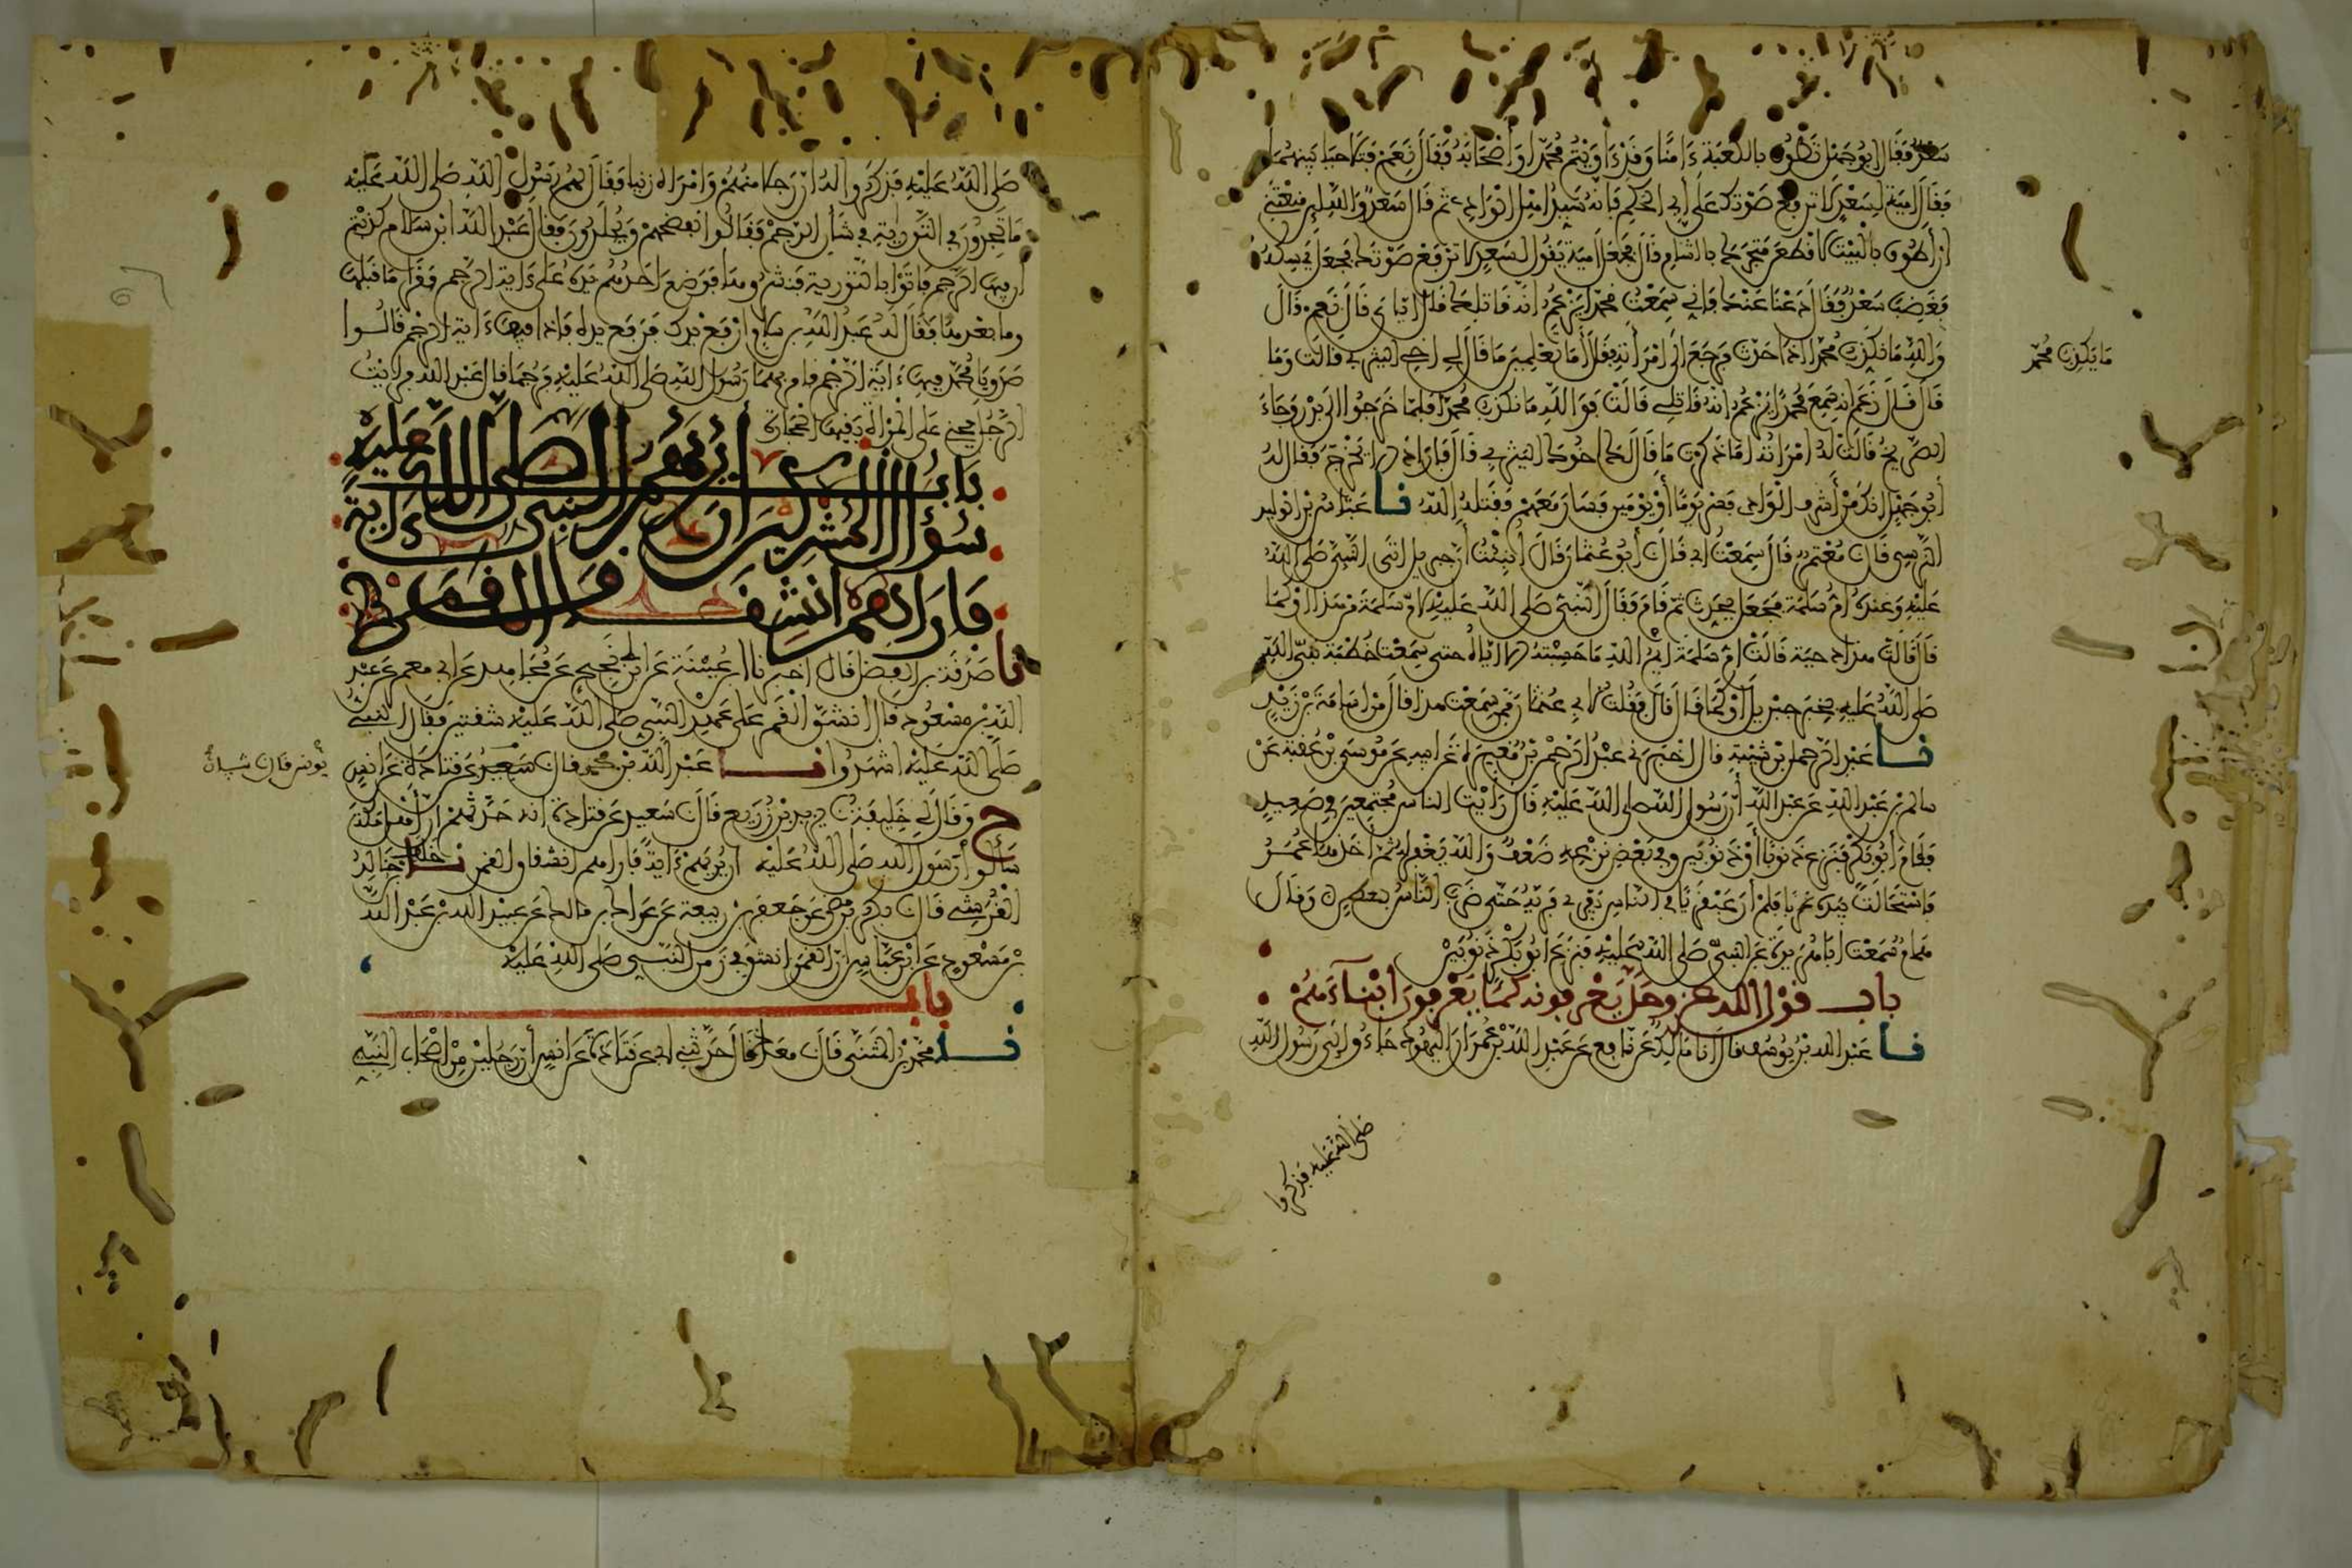 سَعْدٌ فَقَالَ أبُو جَهْلٍ تَطُوفُ بِالكَعْبَةِ ءَامِنًا وَقَدْ ءَاوَيْتُمْ مُحَمَّدًا وَأصْحَابَهُ فَقَالَ نَعَمْ فَتَلَاحَيَا بَيْنَهُمَا
فَقَالَ أمَيَّةُ لِسَعْدٍ لَا تَرْفَعْ صَوْتَكَ عَلَى أبِي الحَكَمِ فَإنَّهُ سَيِّدُ أهْلِ الوَادِي ثُمَّ قَالَ سَعْدٌ وَاللهِ لَئِنْ مَنَعْتَنِي
أنْ أطُوفَ بِالْبَيْتِ لَأقْطَعَنَّ مَتْجَرَكَ بِالشَّامِ قَالَ فَجَعَلَ أمَيَّةُ يَقُولُ لِسَعْدٍ لَا تَرْفَعْ صَوْتَكَ فَجَعَلَ يُمْسِكُهُ
فَغَضِبَ سَعْدٌ فَقَالَ دَعْنَا عَنْكَ فَإنِّي سَمِعْتُ مُحَمَّدًا يَزْعُمُ أنَّهُ قَاتِلُكَ قَالَ إيَّايَ قَالَ نَعَمْ قَالَ
وَاللهِ مَا يَكْذِبُ مُحَمَّدٌ إذَا حَدَّثَ فَرَجَعَ إلَى امْرَأتِهِ فَقَالَ أمَا تَعْلَمِينَ مَا قَالَ لِي أخِي اليَثْرِبِي قَالَتْ وَمَا
قَالَ قَالَ زَعَمَ أنَّهُ سَمِعَ مُحَمَّدًا يَزْعُمُ أنَّهُ قَاتِلِي قَالَتْ فَوَاللهِ مَا يَكْذِبُ مُحَمَّدٌ فَلَمَّا خَرَجُوا إلَى بَدْرٍ وَجَاءَ
الصَّرِيخُ قَالَتْ لَهُ امْرَأتُهُ أمَا ذَكَرْتَ مَا قَالَ لَكَ أخُوكَ اليَثْرِبِي قَالَ فَأرَادَ أن لا يَخْرُجَ فَقَالَ لَهُ
أبُو جَهْلٍ إنَّكَ مِنْ أشْرَافِ الوَادِي فَسِرْ يَوْمًا أوْ يَوْمَيْنِ فَسَارَ مَعَهُمْ فَقَتَلَهُ اللهُ نا عَبَّاسُ بْنُ الوَلِيدِ
النَّرْسِي قَالَ نَا مُعْتَمِرٌ قَالَ سَمِعْتُ أبِي قَالَ نَا أبُو عُثْمَانَ قَالَ أُنْبِئْتُ أنَّ جِبْرِيلَ أتَى النَّبِيَّ صَلَّى اللهُ
عَلَيْهِ وَعِنْدَهُ أمُّ سَلَمَةَ فَجَعَلَ يُحَدِّثُ ثُمَّ قَامَ فَقَالَ النَّبِيُّ صَلَّى اللهُ عَلَيْهِ لِأمِّ سَلَمَةَ مَنْ هَذَا أوْ كَمَا
قَالَ قَالَتْ هَذَا دِحْيَةُ قَالَتْ أمُّ سَلَمَةَ أيْمُ اللهِ مَا حَسِبْتُهُ إلَّا إيَّاهُ حَتَّى سَمِعْتُ خُطْبَةَ نَبِيِّ اللهِ
صَلَّى اللهُ عَلَيْهِ يُخْبِرُ جِبْرِيلَ أوْ كَمَا قَالَ قَالَ فَقُلْتُ لِأبِي عُثْمَانَ مِمَّنْ سَمِعْتَ هَذَا قَالَ مِنْ أسَامَةَ بْنِ زَيْدٍ
نا عَبْدُ الرَّحْمَنِ بْنُ شَيْبَةَ قَالَ أخْبَرَنِي عَبْدُ الرَّحْمَنِ بْنُ مُغِيرَةَ عَنْ أبِيهِ عَنْ مُوسَى بْنِ عُقْبَةَ عَنْ
سَالِمِ بْنِ عَبْدِ اللهِ عَنْ عَبْدِ اللهِ أنَّ رَسُولَ اللهِ صَلَّى اللهُ عَلَيْهِ قَالَ رَأيْتُ النَّاسَ مُجْتَمِعِينَ فِي صَعِيدٍ
فَقَامَ أبُو بَكْرٍ فَنَزَعَ ذَنُوبًا أوْ ذَنُوبَيْنِ وَفِي بَعْضِ نَزْعِهِ ضَعْفٌ وَاللهُ يَغْفِرُ لَهُ ثُمَّ أخَذَهَا عُمَرُ
فَاسْتَحَالَتْ بِيَدِهِ غَرْبًا فَلَمْ أرَ عَبْقَرِيًّا فِي النَّاسِ يَفْرِي فَرِيَّهُ حَتَّى ضَرَبَ النَّاسُ بِعَطَنٍ وَقَالَ
هَمَّامٌ سَمِعْتُ أبَا هُرَيْرَةَ عَنِ النَّبِيِّ صَلَّى اللهُ عَلَيْهِ فَنَزَعَ أبُو بَكْرٍ ذَنُوبَيْنِ
باب قَوْلِ اللهِ عَزَّ وَجَلَّ يَعْرِفُونَهُ كَمَا يَعْرِفُونَ أبْنَاءَهُمْ
نا عَبْدُ اللهِ بْنُ يُوسُفَ قَالَ أنَا مَالِكٌ عَنْ نَافِعٍ عَنْ عَبْدِ اللهِ بْنِ عُمَرَ أنَّ اليَهُودَ جَاءُوا إلَى رَسُولِ اللهِ
صلى الله عليه فذكروا
مَا يَكْذِبُ مُحَمَّد
صَلَّى اللهُ عَلَيْهِ فَذَكَرُوا لَهُ أنَّ رَجُلًا مِنْهُمْ وَامْرَأةً زَنَيَا فَقَالَ لَهُمْ رَسُولُ اللهِ صَلَّى اللهُ عَلَيْهِ
مَا تَجِدُونَ فِي التَّوْرَيةِ فِي شَأنِ الرَّجْمِ فَقَالُوا نَفْضَحُهُمْ وَيُجْلَدُونَ فَقَالَ عَبْدُ اللهِ ابْنُ سَلَامٍ كَذَبْتُمْ
إنَّ فِيهَا الرَّجْمَ فَأتَوْا بِالتَّوْرَيةِ فَنَشَرُوهَا فَوَضَعَ أحَدُهُمْ يَدَهُ عَلَى ءَايَةِ الرَّجْمِ فَقَرَأ مَا قَبْلَهَا
وَمَا بَعْدَهَا فَقَالَ لَهُ عَبْدُ اللهِ بْنُ سَلَامٍ ارْفَعْ يَدَكَ فَرَفَعَ يَدَهُ فَإذَا فِيهَا ءَايَةُ الرَّجْمِ قَالُوا
صَدَقَ يَا مُحَمَّدُ فِيهَا ءَايَةُ الرَّجْمِ فَأمَرَ بِهِمَا رَسُولُ اللهِ صَلَّى اللهُ عَلَيْهِ فَرُجِمَا قَالَ عَبْدُ اللهِ فَرَأيْتُ
الرَّجُلَ يَحْنِي عَلَى المَرْأةِ يَقِيهَا الحِجَارَةَ
بَابُ سُؤَالِ المُشْرِكِينَ أنْ يُرِيَهُمُ النَّبِيُّ صَلَّى اللهُ عَلَيْهِ ءَايَةً
فَأرَاهُمُ انْشِقَاقَ القَمَرِ
نا صَدَقَةُ بْنُ الفَضْلِ قَالَ أخْبَرَنَا ابْنُ عُيَيْنَةَ عَنِ ابْنِ أبِي نَجِيحٍ عَنْ مُجَاهِدٍ عَنْ أبِي مَعْمَرٍ عَنْ عَبْدِ
اللهِ بْنِ مَسْعُودٍ قَالَ انْشَقَّ القَمَرُ عَلَى عَهْدِ النَّبِيِّ صَلَّى اللهُ عَلَيْهِ شِقَّتَيْنِ فَقَالَ النَّبِيُّ
صَلَّى اللهُ عَلَيْهِ اشْهَدُوا نا عَبْدُ اللهِ بْنُ مُحَمَّدٍ قَالَ سَعِيدٌ عَنْ قَتَادَةَ عَنْ أنَسٍ
ح وَقَالَ لِي خَلِيفَةُ نا يَزِيدُ بْنُ زُرَيْعٍ قَالَ سَعِيدٌ عَنْ قَتَادَةَ أنَّهُ حَدَّثَهُمْ أنَّ أهْلَ مَكَّةَ
سَألُوا رَسُولَ اللهِ صَلَّى اللهُ عَلَيْهِ أنْ يُرِيَهُمْ ءَايَةً فَأرَاهُمُ انْشِقَاقَ القَمَرِ نا خَلَفُ بْنُ خَالِدٍ
القُرَشِي قَالَ نَا بَكْرُ بْنُ مُضَرَ عَنْ جَعْفَرِ بْنِ رَبِيعَةَ عَنْ عِرَاكِ بْنِ مَالِكٍ عَنْ عُبَيْدِ اللهِ بْنِ عَبْدِ اللهِ
بْنِ مَسْعُودٍ عَنِ ابْنِ عَبَّاسٍ أنَّ القَمَرَ انْشَقَّ فِي زَمَنِ النَّبِيِّ صَلَّى اللهُ عَلَيْهِ
باب
نا مُحَمَّدُ بْنُ المُثَنَّى قَالَ نَا مُعَاذٌ قَالَ حَدَّثَنِي أبِي عَنْ قَتَادَةَ عَنْ أنَسٍ أنَّ رَجُلَيْنِ مِنْ أصْحَابِ النَّبِيِّ
يُونُسُ قَالَ نَا شَيْبَانُ